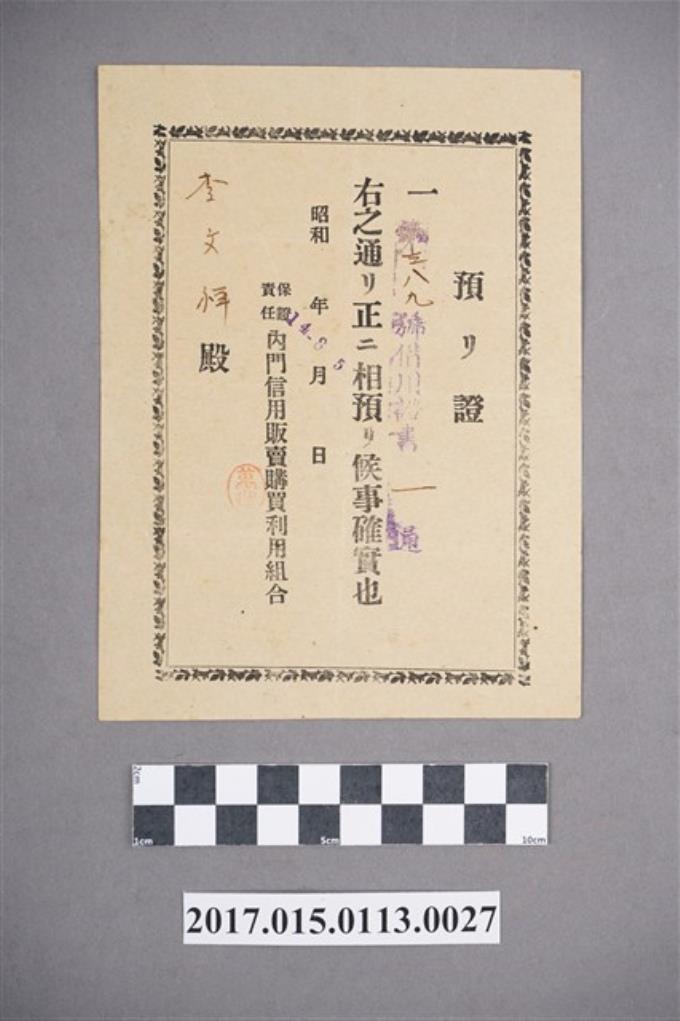 預リ證
一 第三八九號借用證書 一 通
右之通リ正ニ相預リ候事確實也
昭和 年 月 日
14.8.5
保證責任 內門信用販賣購買利用組合
李文祥 殿
2cm
1cm 5cm 10cm
2017.015.0113.0027